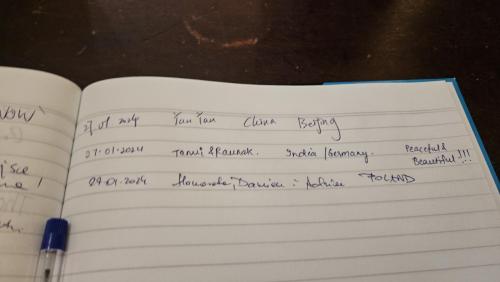 NOW
27.01.2024 Yan Yan China Beijing
27-01-2024 Tanvi & Raunak. India/Germany. Peaceful &
Beautiful!!!
27.01.2024 Damian i Adrian POLAND